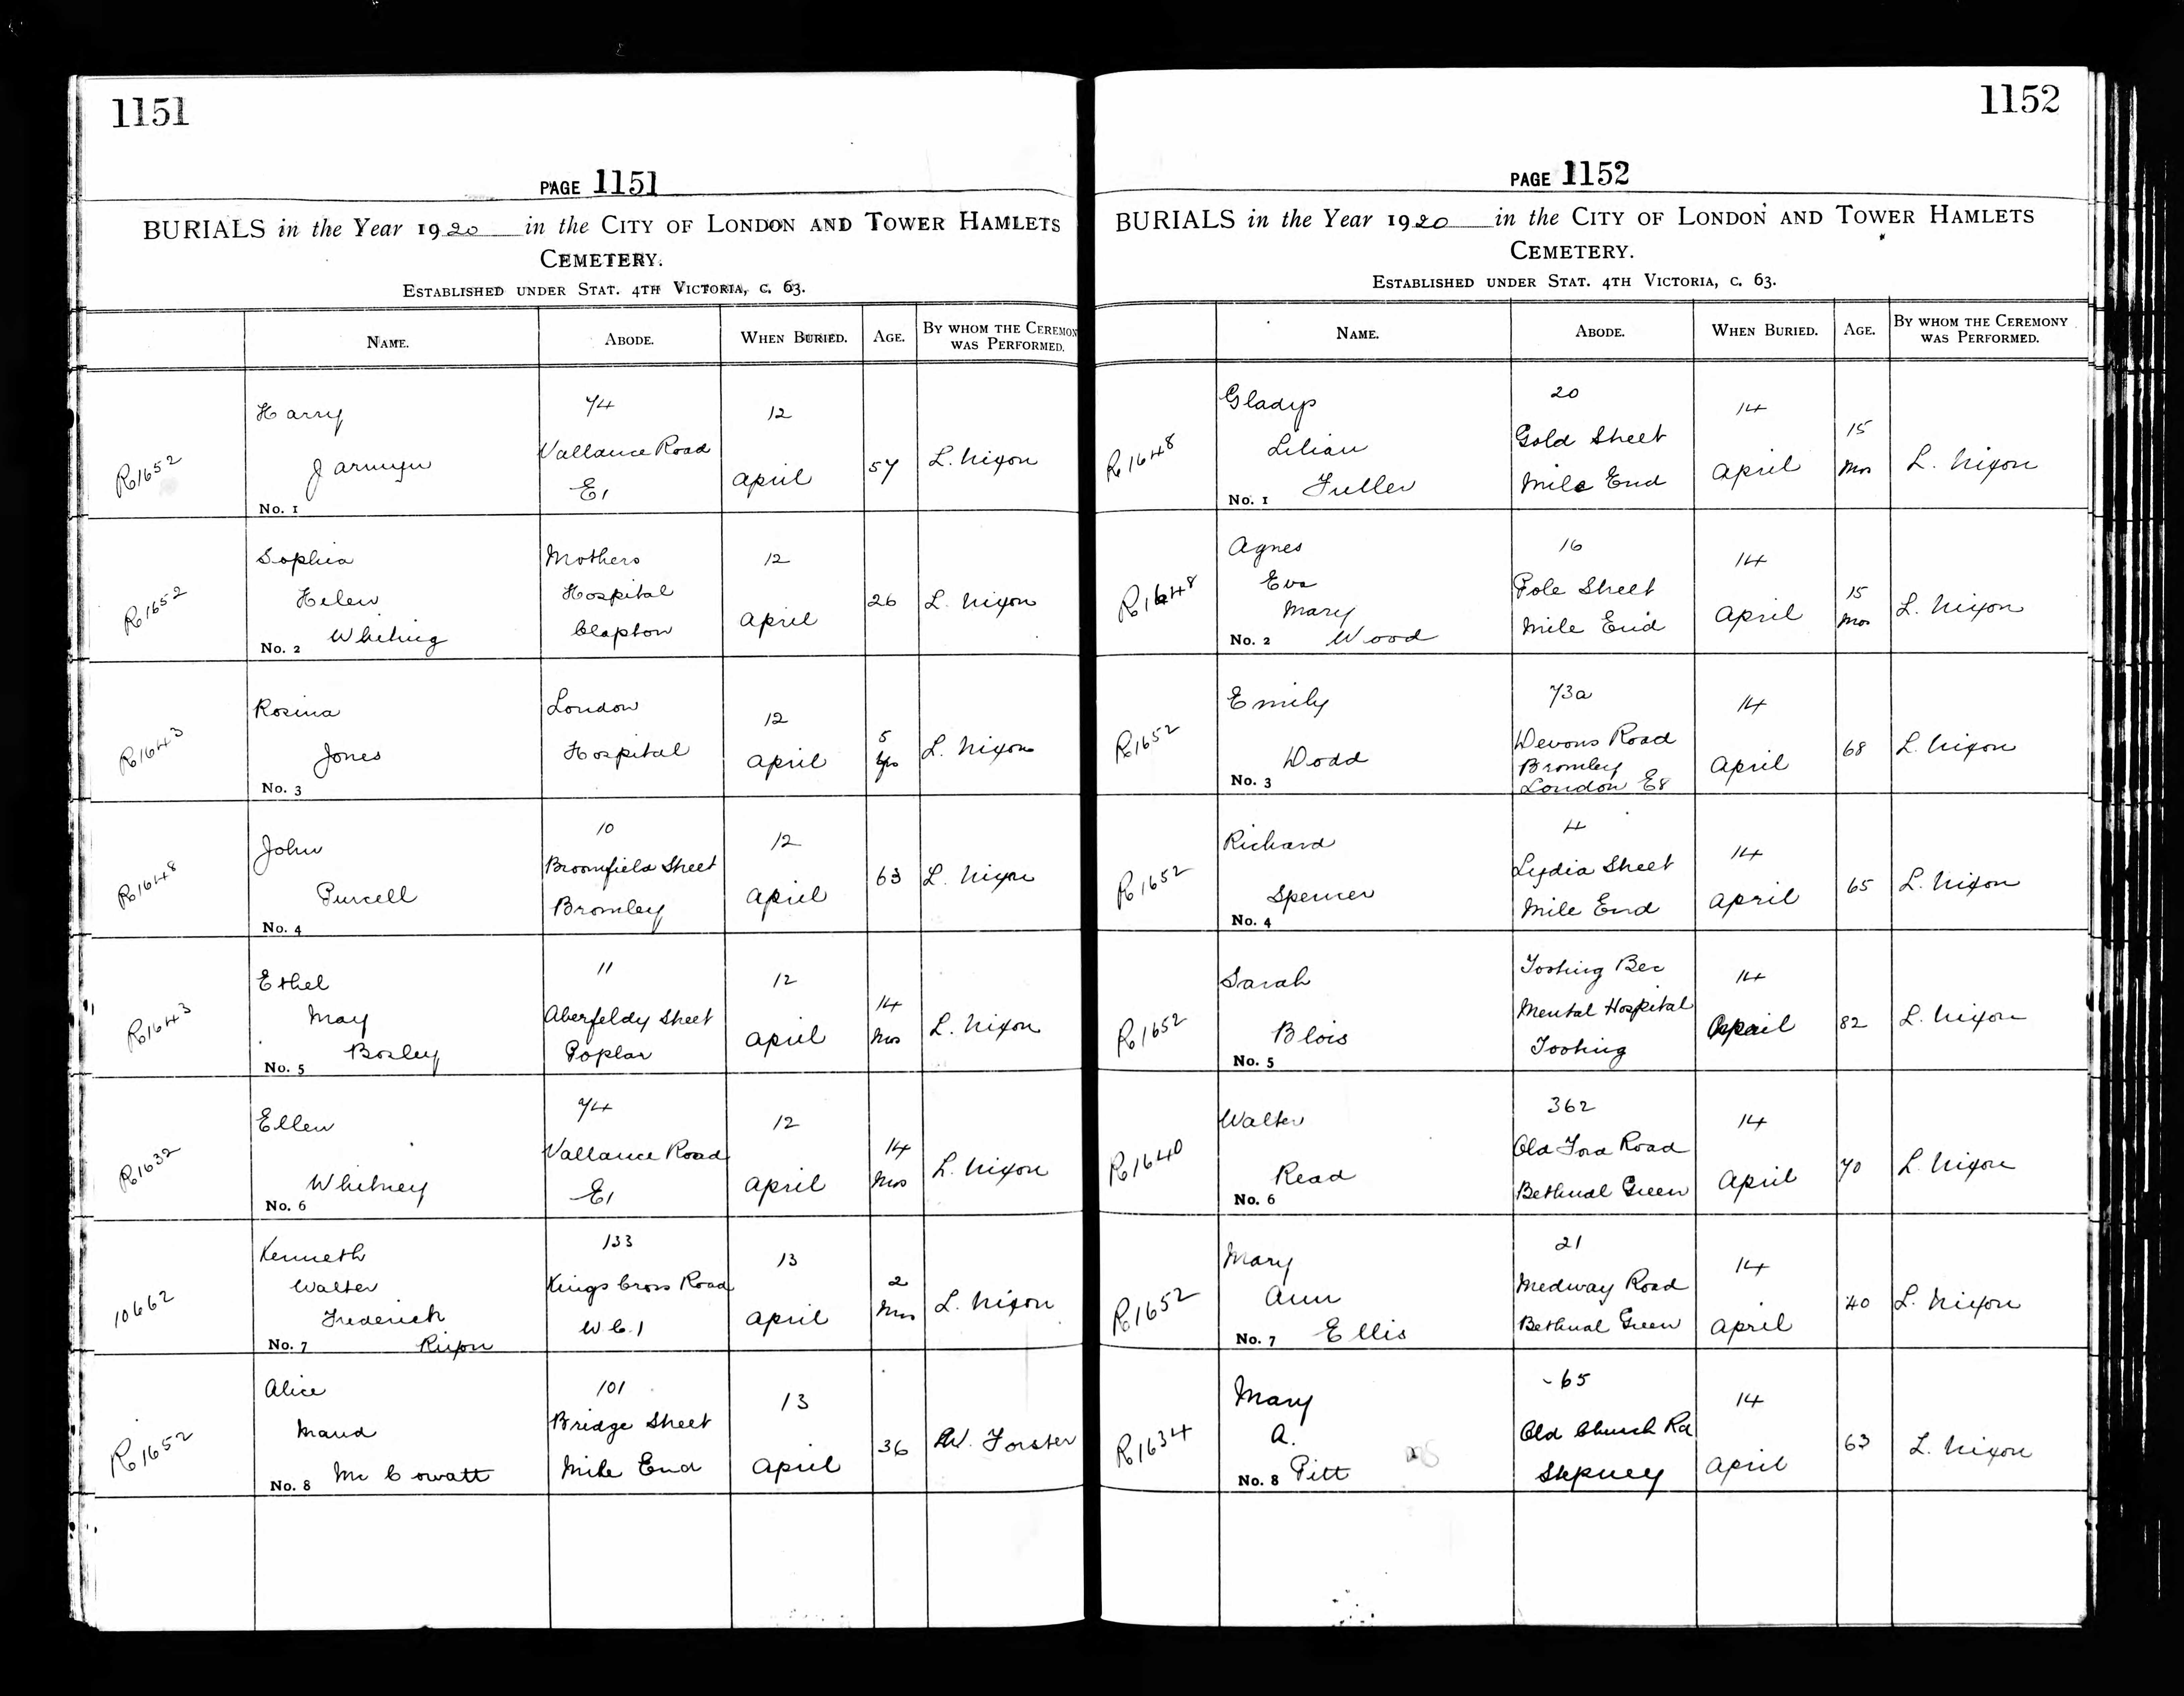 1151
PAGE 1151
BURIALS in the Year 1920 in the CITY OF LONDON AND TOWER HAMLETS
CEMETERY.
ESTABLISHED UNDER STAT. 4TH VICTORIA, C. 63.
NAME. ABODE. WHEN BURIED. AGE. BY WHOM THE CEREMON
WAS PERFORMED.
R1652
Harry
Jarmyn
No. 1
74
Vallance Road
E1
12
April
57
L. Nixon
R1652
Sophia
Helen
No. 2 Whiting
Mothers
Hospital
Clapton
12
April
26
L. Nixon
R1643
Rosina
Jones
No. 3
London
Hospital
12
April
5
yrs
L. Nixon
R1648
John
Purcell
No. 4
10
Broomfield Street
Bromley
12
April
63
L. Nixon
R1643
Ethel
May
Bosley
No. 5
11
Aberfeldy Street
Poplar
12
April
14
Mos
L. Nixon
R1632
Ellen
Whitney
No. 6
74
Vallance Road
E1
12
April
14
Mos
L. Nixon
10662
Kenneth
Walter
Frederick
No. 7 Rixon
133
Kings Cross Road
W.C.1
13
April
2
Mos
L. Nixon
R1652
Alice
Maud
No. 8 Mc Cowatt
101
Bridge Street
Mile End
13
April
36
W. Forster
1152
PAGE 1152
BURIALS in the Year 1920 in the CITY OF LONDON AND TOWER HAMLETS
CEMETERY.
ESTABLISHED UNDER STAT. 4TH VICTORIA, C. 63.
NAME. ABODE. WHEN BURIED. AGE. BY WHOM THE CEREMONY
WAS PERFORMED.
R1648
Gladys
Lilian
No. 1 Fuller
20
Gold Street
Mile End
14
April
15
Mos
L. Nixon
R1648
Agnes
Eva
Mary
No. 2 Wood
16
Pole Street
Mile End
14
April
15
Mos
L. Nixon
R1652
Emily
Dodd
No. 3
73a
Devons Road
Bromley
London E8
14
April
68
L. Nixon
R1652
Richard
Spencer
No. 4
4
Lydia Street
Mile End
14
April
65
L. Nixon
R1652
Sarah
Blois
No. 5
Tooting Bec
Mental Hospital
Tooting
14
April
82
L. Nixon
R1640
Walter
Read
No. 6
362
Old Ford Road
Bethnal Green
14
April
70
L. Nixon
R1652
Mary
Ann
No. 7 Ellis
21
Medway Road
Bethnal Green
14
April
40
L. Nixon
R1634
Mary
A.
No. 8 Pitt
65
Old Church Rd
Stepney
14
April
63
L. Nixon